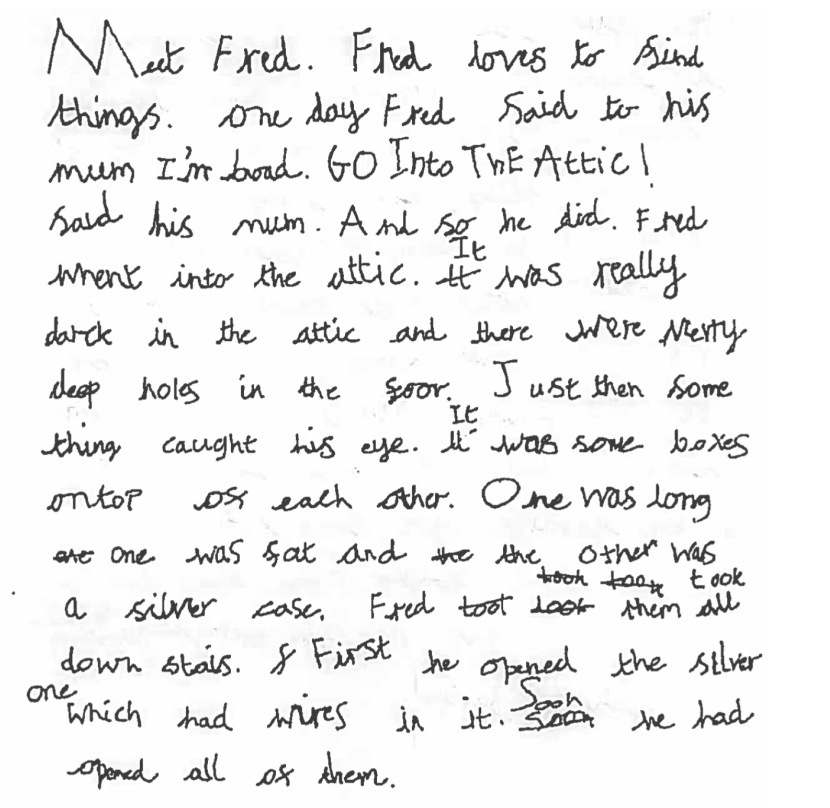 Meet Fred. Fred loves to find
things. One day Fred said to his
mum I'm boad. GO Into ThE Attic!
said his mum. And so he did. Fred
It
whent into the attic. It was really
darck in the attic and there were verry
deep holes in the foor. Just then some
It
thing caught his eye. It was some boxes
ontop off each other. One was long
are one was fat and the the other was
took took took
a silver case. Fred toot look them all
down stais. f First he opened the silver
one
which had wires in it. Soon
Soon he had
opened all of them.